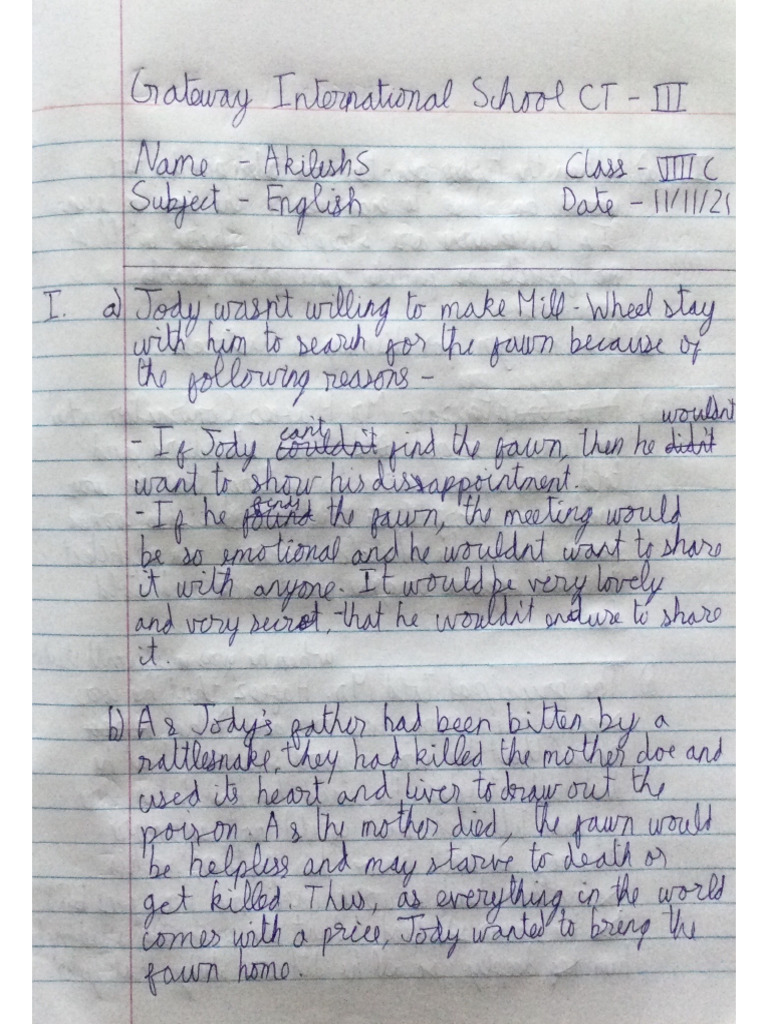 Gateway International School CT - III
Name - Akilesh S Class - VIII C
Subject - English Date - 11/11/21
I. a) Jody wasn't willing to make Mill-Wheel stay
with him to search for the fawn because of
the following reasons -
wouldn't
- If Jody can't couldn't find the fawn, then he didn't
want to show his dissappointment.
- If he finds found the fawn, the meeting would
be so emotional and he wouldn't want to share
it with anyone. It would be very lovely
and very secret, that he wouldn't endure to share
it.
b) As Jody's father had been bitten by a
rattlesnake, they had killed the mother doe and
used its heart and liver to draw out the
poison. As the mother died, the fawn would
be helpless and may starve to death or
get killed. Thus, as everything in the world
comes with a price, Jody wanted to bring the
fawn home.